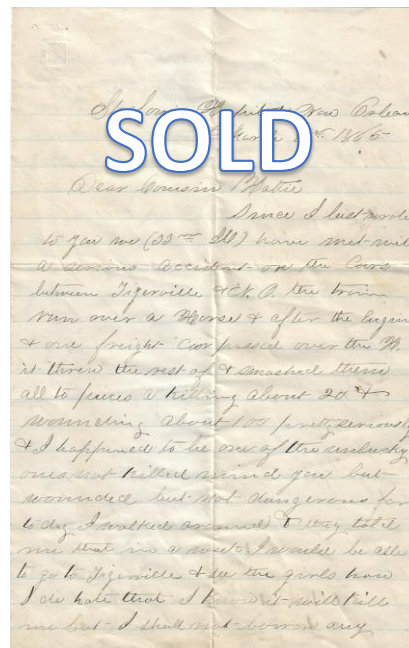 St. Louis Hospital New Orleans
March 1865
SOLD
Dear Cousin Mattie
Since I last wrote
to you we (33rd Ill) have met with
a serious accident on the Cars
between Tigerville & N.O. the train
run over a Horse & after the Engine
& one freight Car passed over the H.
it threw the rest of & smashed them
all to pieces a killing about 20 &
wounding about 100 pretty seriously
& I happened to be one of the unlucky
ones not killed mind you but
wounded but not dangerous for
to day I walked around & they told
me that in a week I would be able
to go to Tigerville & see the girls how
I do hate that I know it will kill
me but I shall not borrow any